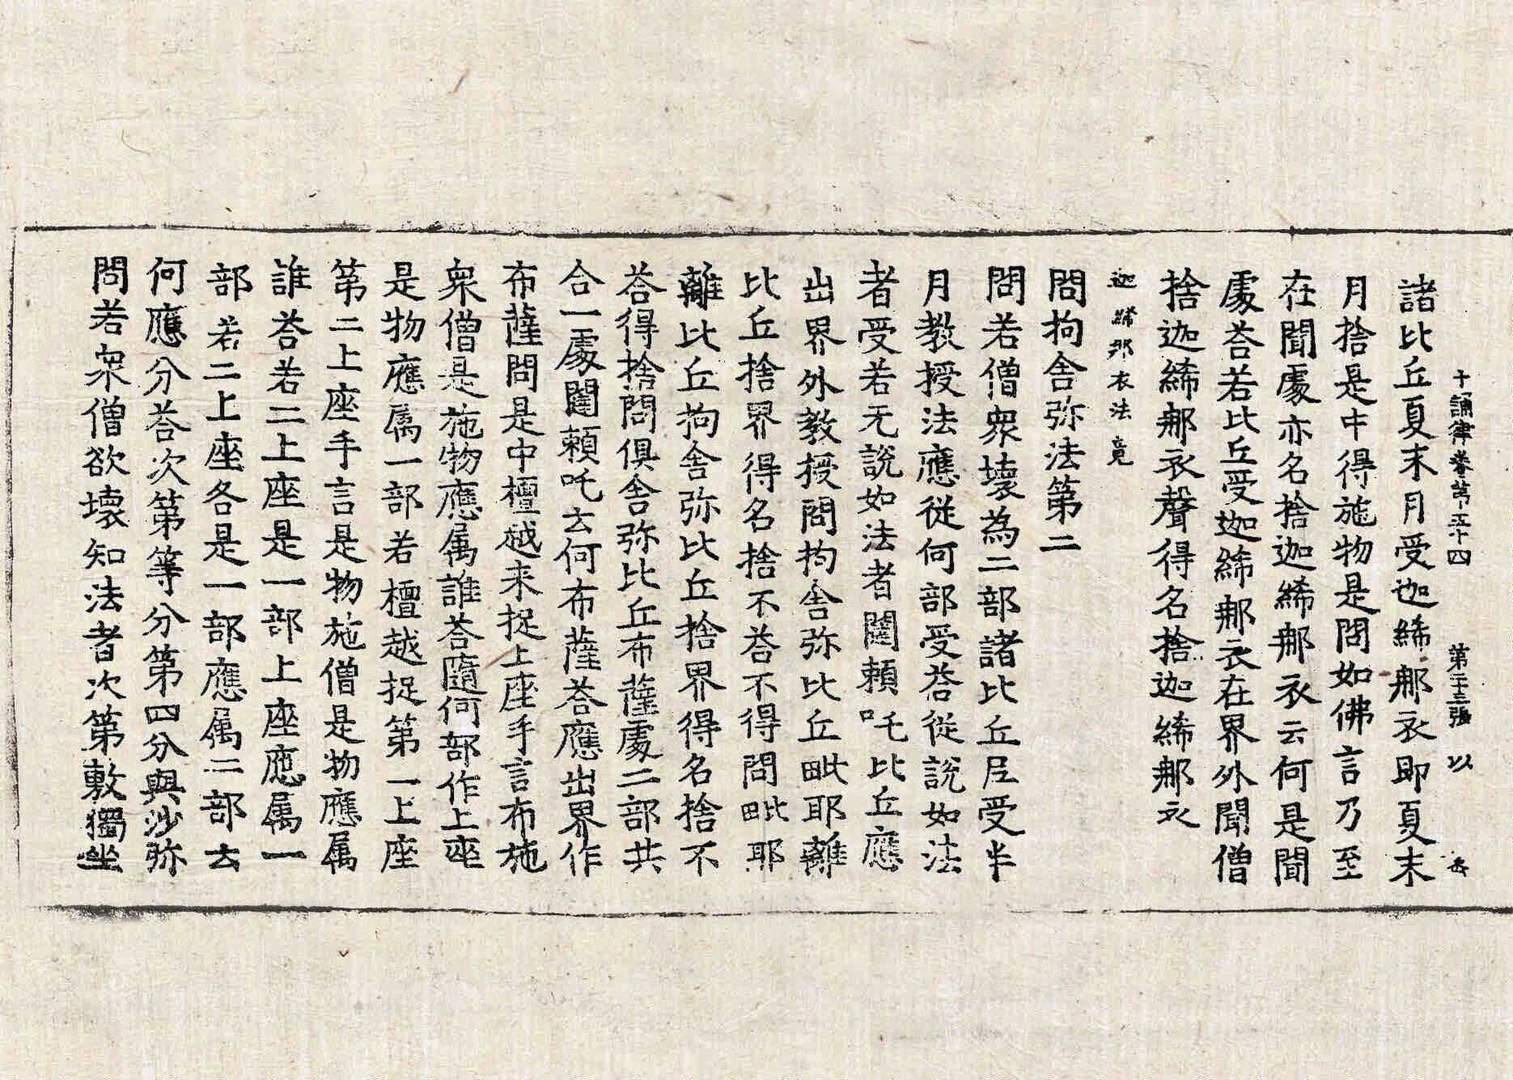 十誦律卷第五十四 第二十三張 以
諸比丘夏末月受迦絺那衣即夏末
月捨是中得施物是問如佛言乃至
在聞處亦名捨迦絺那衣云何是聞
處荅若比丘受迦絺那衣在界外聞僧
捨迦絺那衣聲得名捨迦絺那衣
迦絺那衣法竟
問拘舍弥法第二
問若僧衆壞為二部諸比丘尼受半
月教授法應從何部受荅從說如法
者受若无說如法者闥賴吒比丘應
出界外教授問拘舍弥比丘毗耶離
比丘捨界得名捨不荅不得問毗耶
離比丘拘舍弥比丘捨界得名捨不
荅得捨問俱舍弥比丘布薩處二部共
合一處闥賴吒云何布薩荅應出界作
布薩問是中檀越来捉上座手言布施
衆僧是施物應属誰荅隨何部作上座
是物應属一部若檀越捉第一上座
第二上座手言是物施僧是物應属
誰荅若二上座是一部上座應属一
部若二上座各是一部應属二部云
何應分荅次第等分第四分與沙弥
問若衆僧欲壞知法者次第敷獨坐